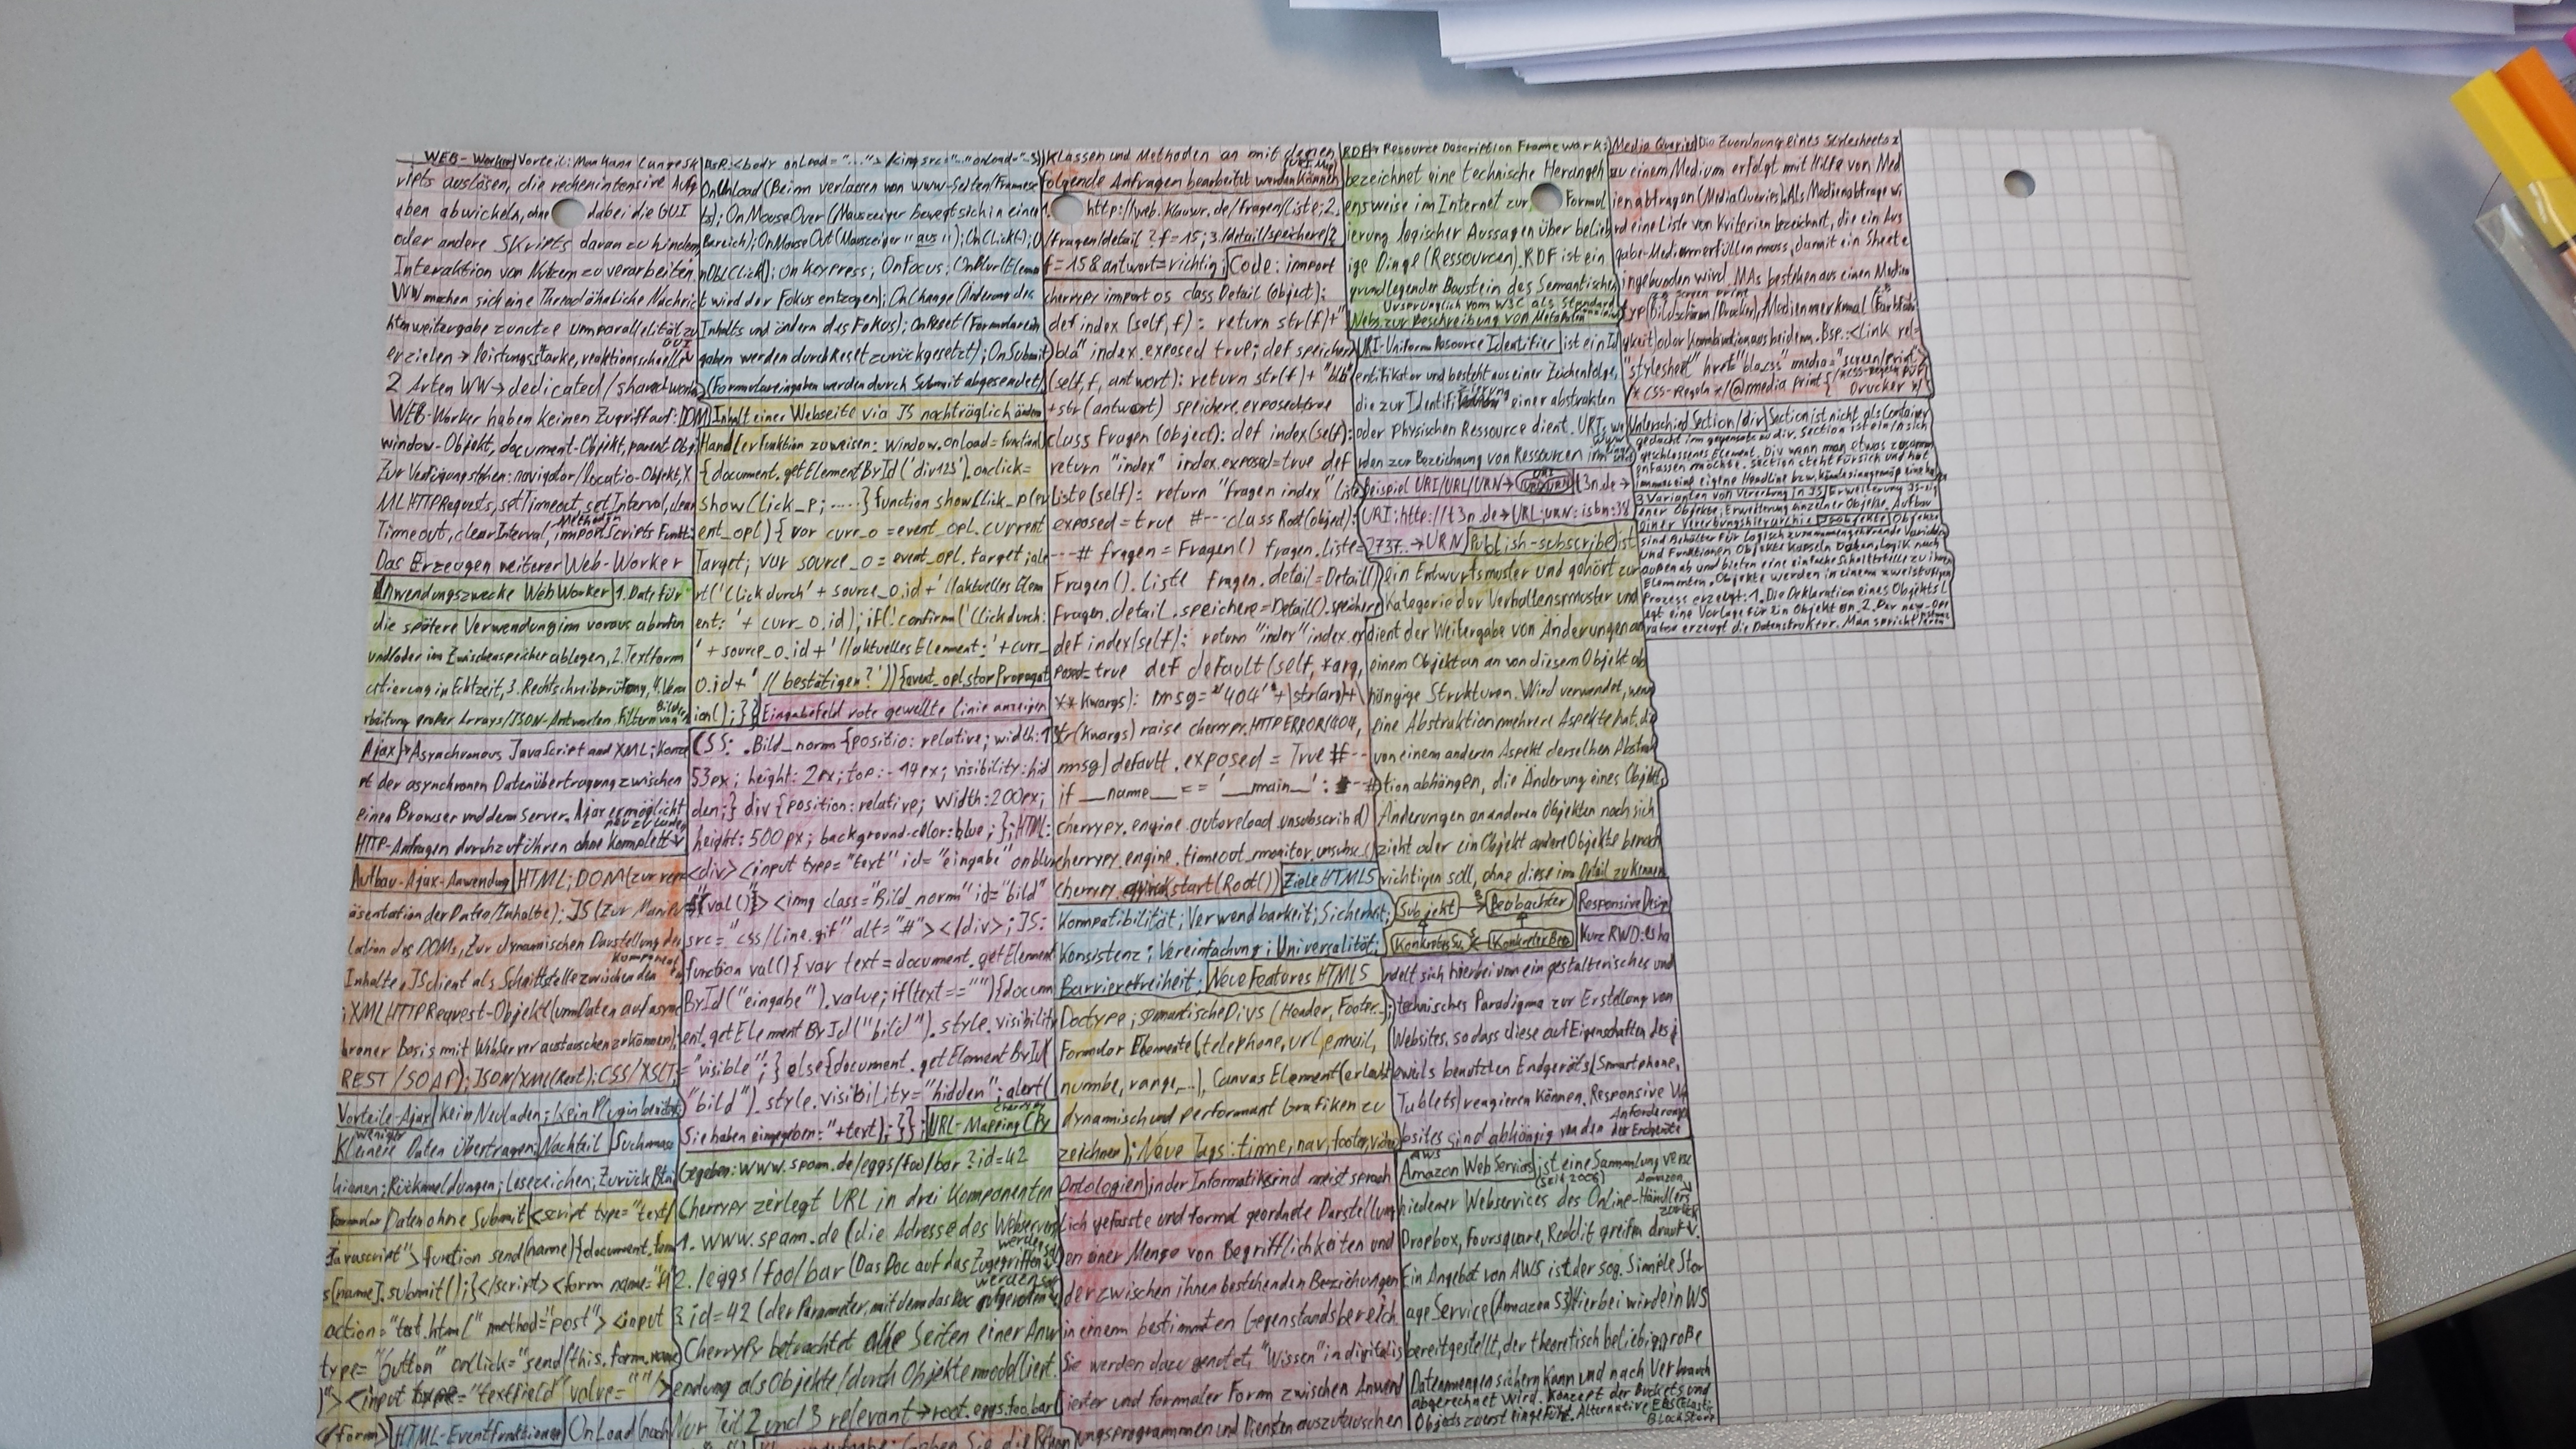 WEB-Worker Vorteil: Man kann langesk
ripts auslösen, die rechenintensive Aufg
aben abwickeln, ohne dabei die GUI
oder andere Skripts daran zu hindern,
Interaktion von Nutzern zu verarbeiten
WW machen sich eine Threadähnliche Nachric
htenweitergabe zunutze um parallelität zu
erzielen → leistungsstarke, reaktionsschnelle GUI
2 Arten WW → dedicated/shared work
WEB-Worker haben keinen Zugriff auf: DOM
window-Objekt, document-Objekt, parent Obj
Zur Verfügung stehen: navigator/locatio-Objekt, X
MLHTTPRequests, setTimeout, setInterval, clear
Timeout, clearInterval, importScripts Methoden
Das Erzeugen weiterer Web-Worker
Anwendungszwecke WebWorker 1. Date für
die spätere Verwendung im voraus abrufen
und/oder im Zwischenspeicher ablegen, 2. Textform
atierung in Echtzeit, 3. Rechtschreibprüfung, 4. Vera
rbeitung großer Arrays/JSON-Antworten, Filtern von Bilder
Ajax → Asynchronous JavaScript and XML; Konze
pt der asynchronen Datenübertragung zwischen
einen Browser und dem Server. Ajax ermöglicht
HTTP-Anfragen durchzuführen ohne komplett neu zu laden
Aufbau-Ajax-Anwendung HTML; DOM (zur repr
äsentation der Daten/Inhalte); JS (Zur Manipu
lation des DOMs, Zur dynamischen Darstellung der
Inhalte, JS dient als Schnittstelle zwischen den Komponent
; XMLHTTPRequest-Objekt (um Daten auf async
hroner Basis mit Webserver austauschen zu können);
REST/SOAP); JSON/XML(Text); CSS/XSLT;
Vorteile-Ajax kein Neuladen; kein Plugin benötigt;
Kleinere weniger Daten übertragen; Nachteil Suchmasc
hienen; Rückmeldungen; Lesezeichen; Zurück Btn
Formular Daten ohne Submit <script type="text/
Javascript"> function send(name){document.form
s[name].submit();}</script><form name="
action="test.html" method="post"> <input
type="button" onclick="send(this.form.name
)"> <input type="textfield" value=""/>
</form> HTML-Eventfunktionen OnLoad (nach
<body onLoad="..."> /<img src="..." onLoad="..."
OnUnload (Beim verlassen von www-Seiten/Framese
ts); OnMouseOver (Mauszeiger bewegt sich in einen
Bereich); OnMouseOut (Mauszeiger "aus"); OnClick(); O
nDblClick(); OnKeypress; OnFocus; OnBlur (Eleme
nt wird der Fokus entzogen); OnChange (Änderung des
Inhalts und ändern des Fokus); OnReset (Formularein
gaben werden durch Reset zurückgesetzt); OnSubmit
(Formulareingaben werden durch Submit abgesendet)
Inhalt einer Webseite via JS nachträglich ändern
Handlerfunktion zuweisen: Window.onload=function()
{document.getElementById('div123').onclick=
showClick_p; .....} function showClick_p(ev
ent_opl) { var curr_o=event_opl.current
Target; var source_o = event_opl.target; ale
rt('Click durch' + source_o.id + '//aktuelles Elem
ent: ' + curr_o.id); if(!confirm('Click durch:
' + source_o.id + '//aktuelles Element: ' + curr_
o.id + ' // bestätigen?')){event_opl.stopPropagat
ion();}} Eingabefeld rote gewellte linie anzeigen
CSS: .Bild_norm {positio: relative; width:1
53px; height: 2px; top:-14px; visibility: hid
den;} div {position: relative; width:200px;
height: 500px; background-color:blue;}; HTML:
<div> <input type="text" id="eingabe" onblur
="val()"> <img class="Bild_norm" id="bild"
src="css/line.gif" alt="#"> </div>; JS:
function val(){ var text = document.getElement
ById("eingabe").value; if(text==""){docum
ent.getElementById("bild").style.visibility
="visible";} else{document.getElementById(
"bild").style.visibility="hidden"; alert("
Sie haben eingegeben: "+text);}}; URL-Mapping Cherrypy
Gegeben: www.spam.de/eggs/foo/bar?id=42
Cherrypy zerlegt URL in drei Komponenten
1. www.spam.de (die Adresse des Webservers
2. /eggs/foo/bar (Das Doc auf das Zugegriffen werden soll
3. id=42 (der Parameter, mit dem das Doc aufgerufen werden soll
CherryPy betrachtet alle Seiten einer Anw
endung als Objekte/durch Objekte modelliert.
Nur Teil 2 und 3 relevant → root.eggs.foo.bar(
Klassen und Methoden an mit denen
folgende Anfragen bearbeitet werden können (URI Map)
1. http://web.klausur.de/fragen/liste; 2.
/fragen/detail?f=15; 3. /detail/speichere/?
f=15&antwort=richtig; Code: import
cherrypy import os class Detail (object):
def index (self, f): return str(f)+"
bla" index.exposed true; def speichere
(self, f, antwort): return str(f)+"blb"
+str(antwort) speichere.exposed=true
class Fragen (object): def index(self):
return "index" index.exposed=true def
liste(self): return "fragen index" liste
exposed=true #--- class Root(object):
---# fragen = Fragen() fragen.liste=
Fragen().liste fragen.detail=Detail()
Fragen.detail.speichere=Detail().speichere
def index(self): return "index" index.ex
posed=true def default(self, *arg,
**kwargs): msg="404"+str(arg)+
str(kwargs) raise cherrypy.HTTPERROR(404,
msg) default.exposed = True #--
if __name__ == '__main__': #---#
cherrypy.engine.autoreload.unsubscribe()
cherrypy.engine.timeout_monitor.unsubsc.()
cherrypy.quickstart(Root()) Ziele HTML5
Kompatibilität; Verwendbarkeit; Sicherheit;
Konsistenz; Vereinfachung; Universalität;
Barrierefreiheit; Neue Features HTML5
Doctype; semantische Divs (Header, Footer..);
Formular Elemente (telephone, url, email,
numbe, range,...), Canvas Element (erlaubt
dynamisch und performant Grafiken zu
zeichnen); Neue Tags: time, nav, footer, video
Ontologien in der Informatik sind meist sprach
lich gefasste und formal geordnete Darstellung
en einer Menge von Begrifflichkeiten und
der zwischen ihnen bestehenden Beziehungen
in einem bestimmten Gegenstandsbereich.
Sie werden dazu genutzt, "Wissen" in digitalis
ierter und formaler Form zwischen Anwend
ungsprogrammen und Diensten auszutauschen
RDF → Resource Description Framework:
bezeichnet eine technische Herangeh
ensweise im Internet zur Formul
ierung logischer Aussagen über belieb
ige Dinge (Ressourcen). RDF ist ein
grundlegender Baustein des Semantischen
Webs. Ursprünglich vom W3C als Standard
zur Beschreibung von Metadaten
URI-Uniform Resource Identifier ist ein Id
entifikator und besteht aus einer Zeichenfolge,
die zur Identifizierung einer abstrakten
oder physischen Ressource dient. URIs we
rden zur Bezeichnung von Ressourcen im
Beispiel URI/URL/URN → t3n.de →
URI; http://t3n.de → URL; urn:isbn:38
2737.. → URN Publish-subscribe ist
ein Entwurfsmuster und gehört zur
Kategorie der Verhaltensmuster und
dient der Weitergabe von Änderungen an
einem Objekt an von diesem Objekt ab
hängige Strukturen. Wird verwendet, wenn
eine Abstraktion mehrere Aspekte hat, die
von einem anderen Aspekt derselben Abstrak
tion abhängen, die Änderung eines Objekts
Änderungen an anderen Objekten nach sich
zieht oder ein Objekt andere Objekte benach
richtigen soll, ohne diese im Detail zu kennen
Subjekt → Beobachter
Konkretes Su. Konkreter Beo
Responsive Design
Kurz RWD: es ha
ndelt sich hierbei um ein gestalterisches und
technisches Paradigma zur Erstellung von
Websites, so dass diese auf Eigenschaften des j
eweils benutzten Endgeräts (Smartphone,
Tablets) reagieren können. Responsive We
bsites sind abhängig von den Anforderungen der Endgeräte
AWS
Amazon WebServices ist eine Sammlung versc
(seit 2006)
hiedener Webservices des Online-Händlers Amazon
Dropbox, Foursquare, Reddit greifen drauf zurück.
Ein Angebot von AWS ist der sog. Simple Stor
age Service (Amazon S3) Hierbei wird ein WS
bereitgestellt, der theoretisch beliebig große
Datenmengen sichern kann und nach Verbrauch
abgerechnet wird. Konzept der Buckets und
Objects zuerst eingeführt. Alternative EBS (Elastic
BlockStore
Media Queries Die Zuordnung eines Stylesheets z
zu einem Medium erfolgt mit Hilfe von Med
ienabfragen (MediaQueries). Als Medienabfrage wi
rd eine Liste von Kriterien bezeichnet, die ein Aus
gabe-Medium erfüllen muss, damit ein Sheet e
ingebunden wird. MAs bestehen aus einen Medien
typ (Bildschirm/Drucker), Medienmerkmal (Farbfähi
gkeit) oder Kombination aus beidem. Bsp.: <link rel=
"stylesheet" href="bla.css" media="screen/print">
/* CSS-Regeln */ @media print{ Drucker */
Unterschied Section/div Section ist nicht als Container
gedacht im gegensatz zu div. Section ist ein in sich
geschlossenes Element. Div wenn man etwas zusamm
enfassen möchte. Section steht für sich und hat
immer eine eigene Headline
3 Varianten von Vererbung in JS Erweiterung JS-eig
ener Objekte; Erweiterung einzelner Objekte; Aufbau
einer Vererbungshierarchie Objekte
sind Behälter für logisch zusammengehörende Variablen
und Funktionen Objekte kapseln Daten, Logik nach
außen ab und bieten eine einfache Schnittstelle zu ihren
Elementen. Objekte werden in einem zweistufigen
Prozess erzeugt: 1. Die Deklaration eines Objekts l
egt eine Vorlage für ein Objekt an. 2. Der new-Ope
rator erzeugt die Datenstruktur. Man spricht